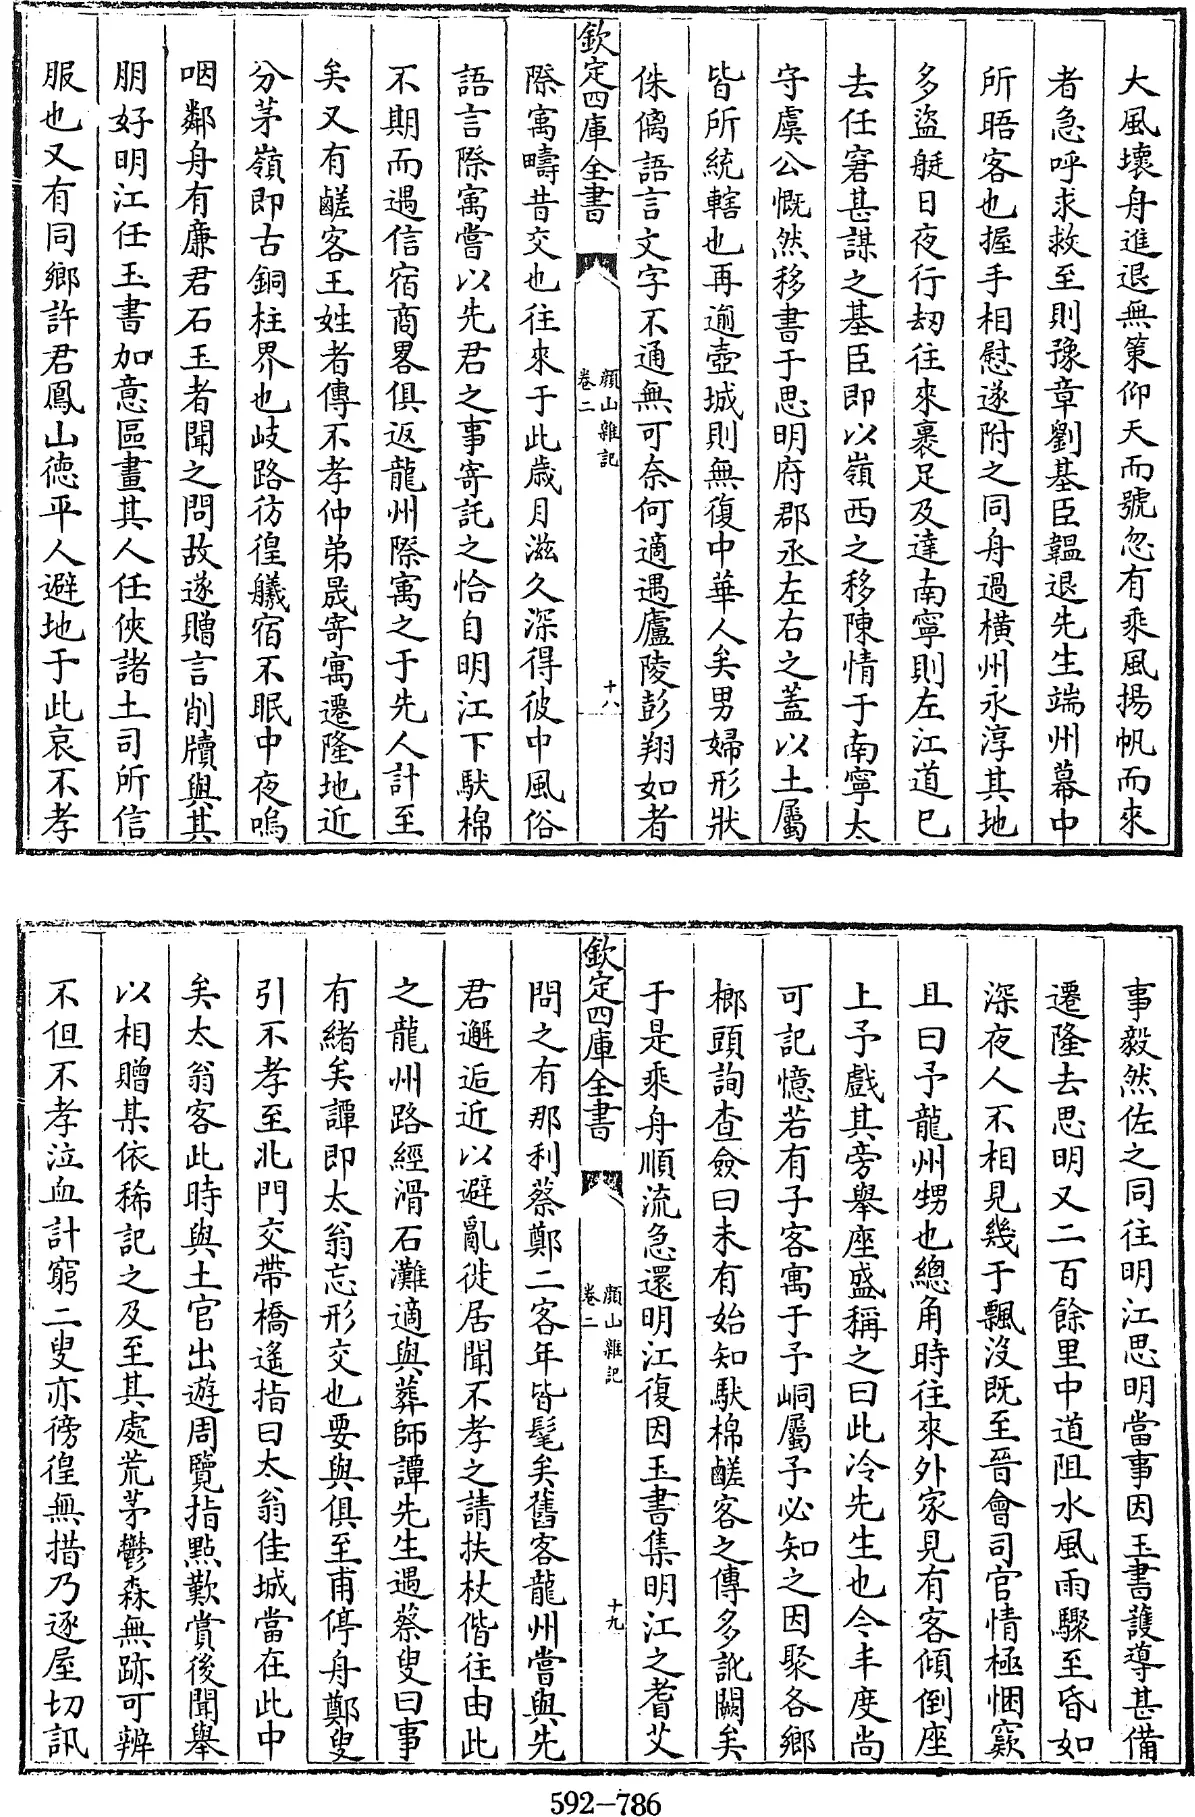 大風壞舟進退無策仰天而號忽有乘風揚帆而來
者急呼求救至則豫章劉基臣韞退先生端州幕中
所晤客也握手相慰遂附之同舟過橫州永淳其地
多盜艇日夜行刼往來裹足及達南寧則左江道已
去任窘甚謀之基臣即以嶺西之移陳情于南寧太
守虞公慨然移書于思明府郡丞左右之蓋以土屬
皆所統轄也再逾壺城則無復中華人矣男婦形狀
侏𠌯語言文字不通無可奈何適遇廬陵彭翔如者
欽定四庫全書
顏山雜記
卷二
十八
際寓疇昔交也往來于此歲月滋久深得彼中風俗
語言際寓嘗以先君之事寄託之恰自明江下馱棉
不期而遇信宿商畧俱返龍州際寓之于先人計至
矣又有鹺客王姓者傳不孝仲弟晟寄寓遷隆地近
分茅嶺即古銅柱界也歧路彷徨艤宿不眠中夜嗚
咽鄰舟有廉君石玉者聞之問故遂贈言削牘與其
朋好明江任玉書加意區畫其人任俠諸土司所信
服也又有同鄉許君鳳山德平人避地于此哀不孝
事毅然佐之同往明江思明當事因玉書護導甚備
遷隆去思明又二百餘里中道阻水風雨驟至昏如
深夜人不相見幾于飄沒既至晉會司官情極悃欵
且曰予龍州甥也總角時往來外家見有客傾倒座
上予戲其旁舉座盛稱之曰此冷先生也今丰度尚
可記憶若有子客寓于予峒屬予必知之因聚各鄉
榔頭詢查僉曰未有始知馱棉鹺客之傳多訛闕矣
于是乘舟順流急還明江復因玉書集明江之耆艾
欽定四庫全書
顏山雜記
卷二
十九
問之有那利蔡鄭二客年皆髦矣舊客龍州嘗與先
君邂逅近以避亂徙居聞不孝之請扶杖偕往由此
之龍州路經滑石灘適與葬師譚先生遇蔡叟曰事
有緒矣譚即太翁忘形交也要與俱至甫停舟鄭叟
引不孝至北門交帶橋遙指曰太翁佳城當在此中
矣太翁客此時與土官出遊周覽指點歎賞後聞舉
以相贈某依稀記之及至其處荒茅鬱森無跡可辨
不但不孝泣血計窮二叟亦徬徨無措乃逐屋切訊
592-786